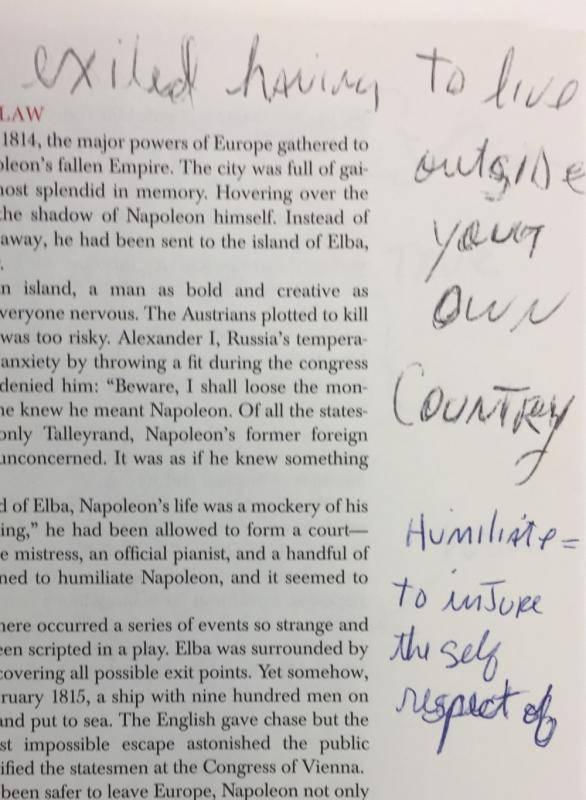 exiled having to live
outside
your
own
Country
Humiliate =
to injure
the self
respect of
LAW
1814, the major powers of Europe gathered to
oleon's fallen Empire. The city was full of gai-
nost splendid in memory. Hovering over the
he shadow of Napoleon himself. Instead of
away, he had been sent to the island of Elba,
.
n island, a man as bold and creative as
veryone nervous. The Austrians plotted to kill
was too risky. Alexander I, Russia's tempera-
anxiety by throwing a fit during the congress
denied him: “Beware, I shall loose the mon-
ne knew he meant Napoleon. Of all the states-
only Talleyrand, Napoleon's former foreign
unconcerned. It was as if he knew something
d of Elba, Napoleon's life was a mockery of his
ing,” he had been allowed to form a court—
e mistress, an official pianist, and a handful of
ned to humiliate Napoleon, and it seemed to
here occurred a series of events so strange and
een scripted in a play. Elba was surrounded by
covering all possible exit points. Yet somehow,
ruary 1815, a ship with nine hundred men on
and put to sea. The English gave chase but the
st impossible escape astonished the public
ified the statesmen at the Congress of Vienna.
been safer to leave Europe, Napoleon not only